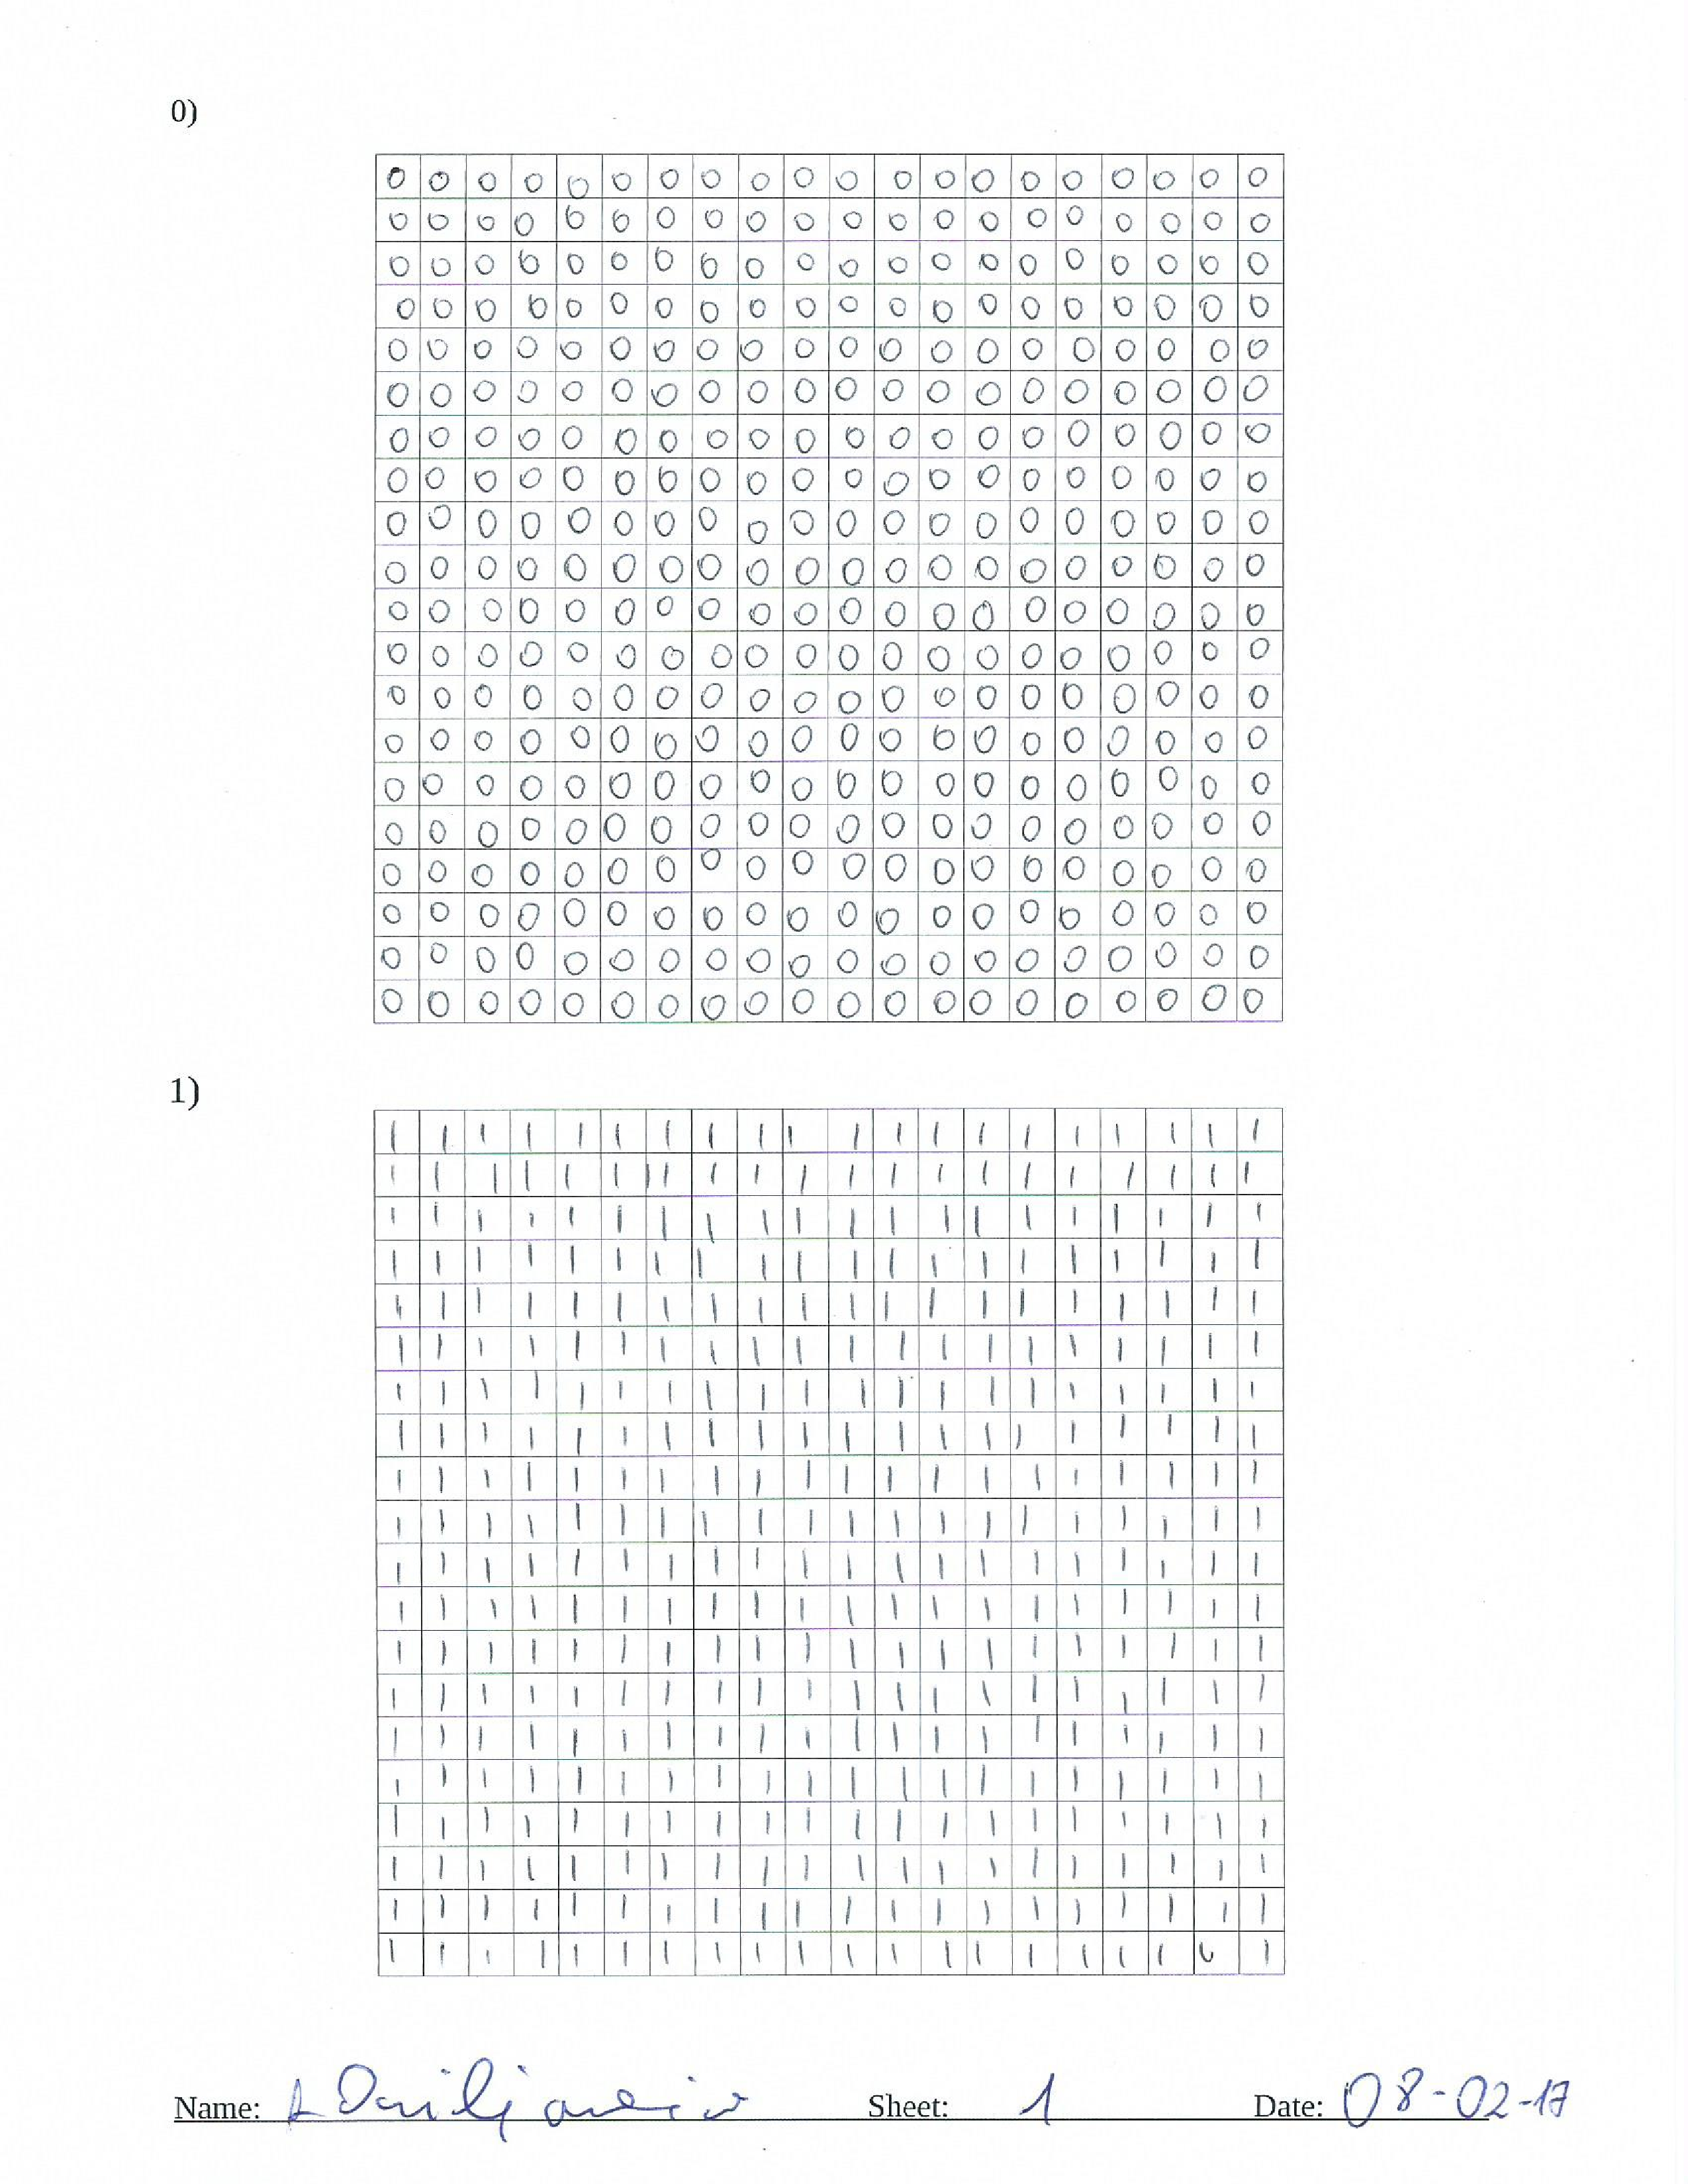 0)
0 0 0 0 0 0 0 0 0 0 0 0 0 0 0 0 0 0 0 0
0 0 0 0 0 0 0 0 0 0 0 0 0 0 0 0 0 0 0 0
0 0 0 0 0 0 0 0 0 0 0 0 0 0 0 0 0 0 0 0
0 0 0 0 0 0 0 0 0 0 0 0 0 0 0 0 0 0 0 0
0 0 0 0 0 0 0 0 0 0 0 0 0 0 0 0 0 0 0 0
0 0 0 0 0 0 0 0 0 0 0 0 0 0 0 0 0 0 0 0
0 0 0 0 0 0 0 0 0 0 0 0 0 0 0 0 0 0 0 0
0 0 0 0 0 0 0 0 0 0 0 0 0 0 0 0 0 0 0 0
0 0 0 0 0 0 0 0 0 0 0 0 0 0 0 0 0 0 0 0
0 0 0 0 0 0 0 0 0 0 0 0 0 0 0 0 0 0 0 0
0 0 0 0 0 0 0 0 0 0 0 0 0 0 0 0 0 0 0 0
0 0 0 0 0 0 0 0 0 0 0 0 0 0 0 0 0 0 0 0
0 0 0 0 0 0 0 0 0 0 0 0 0 0 0 0 0 0 0 0
0 0 0 0 0 0 0 0 0 0 0 0 0 0 0 0 0 0 0 0
0 0 0 0 0 0 0 0 0 0 0 0 0 0 0 0 0 0 0 0
0 0 0 0 0 0 0 0 0 0 0 0 0 0 0 0 0 0 0 0
0 0 0 0 0 0 0 0 0 0 0 0 0 0 0 0 0 0 0 0
0 0 0 0 0 0 0 0 0 0 0 0 0 0 0 0 0 0 0 0
0 0 0 0 0 0 0 0 0 0 0 0 0 0 0 0 0 0 0 0
0 0 0 0 0 0 0 0 0 0 0 0 0 0 0 0 0 0 0 0
1)
1 1 1 1 1 1 1 1 1 1 1 1 1 1 1 1 1 1 1 1
1 1 1 1 1 1 1 1 1 1 1 1 1 1 1 1 1 1 1 1
1 1 1 1 1 1 1 1 1 1 1 1 1 1 1 1 1 1 1 1
1 1 1 1 1 1 1 1 1 1 1 1 1 1 1 1 1 1 1 1
1 1 1 1 1 1 1 1 1 1 1 1 1 1 1 1 1 1 1 1
1 1 1 1 1 1 1 1 1 1 1 1 1 1 1 1 1 1 1 1
1 1 1 1 1 1 1 1 1 1 1 1 1 1 1 1 1 1 1 1
1 1 1 1 1 1 1 1 1 1 1 1 1 1 1 1 1 1 1 1
1 1 1 1 1 1 1 1 1 1 1 1 1 1 1 1 1 1 1 1
1 1 1 1 1 1 1 1 1 1 1 1 1 1 1 1 1 1 1 1
1 1 1 1 1 1 1 1 1 1 1 1 1 1 1 1 1 1 1 1
1 1 1 1 1 1 1 1 1 1 1 1 1 1 1 1 1 1 1 1
1 1 1 1 1 1 1 1 1 1 1 1 1 1 1 1 1 1 1 1
1 1 1 1 1 1 1 1 1 1 1 1 1 1 1 1 1 1 1 1
1 1 1 1 1 1 1 1 1 1 1 1 1 1 1 1 1 1 1 1
1 1 1 1 1 1 1 1 1 1 1 1 1 1 1 1 1 1 1 1
1 1 1 1 1 1 1 1 1 1 1 1 1 1 1 1 1 1 1 1
1 1 1 1 1 1 1 1 1 1 1 1 1 1 1 1 1 1 1 1
1 1 1 1 1 1 1 1 1 1 1 1 1 1 1 1 1 1 1 1
1 1 1 1 1 1 1 1 1 1 1 1 1 1 1 1 1 1 1
Name: Sheet: 1 Date: 08-02-17